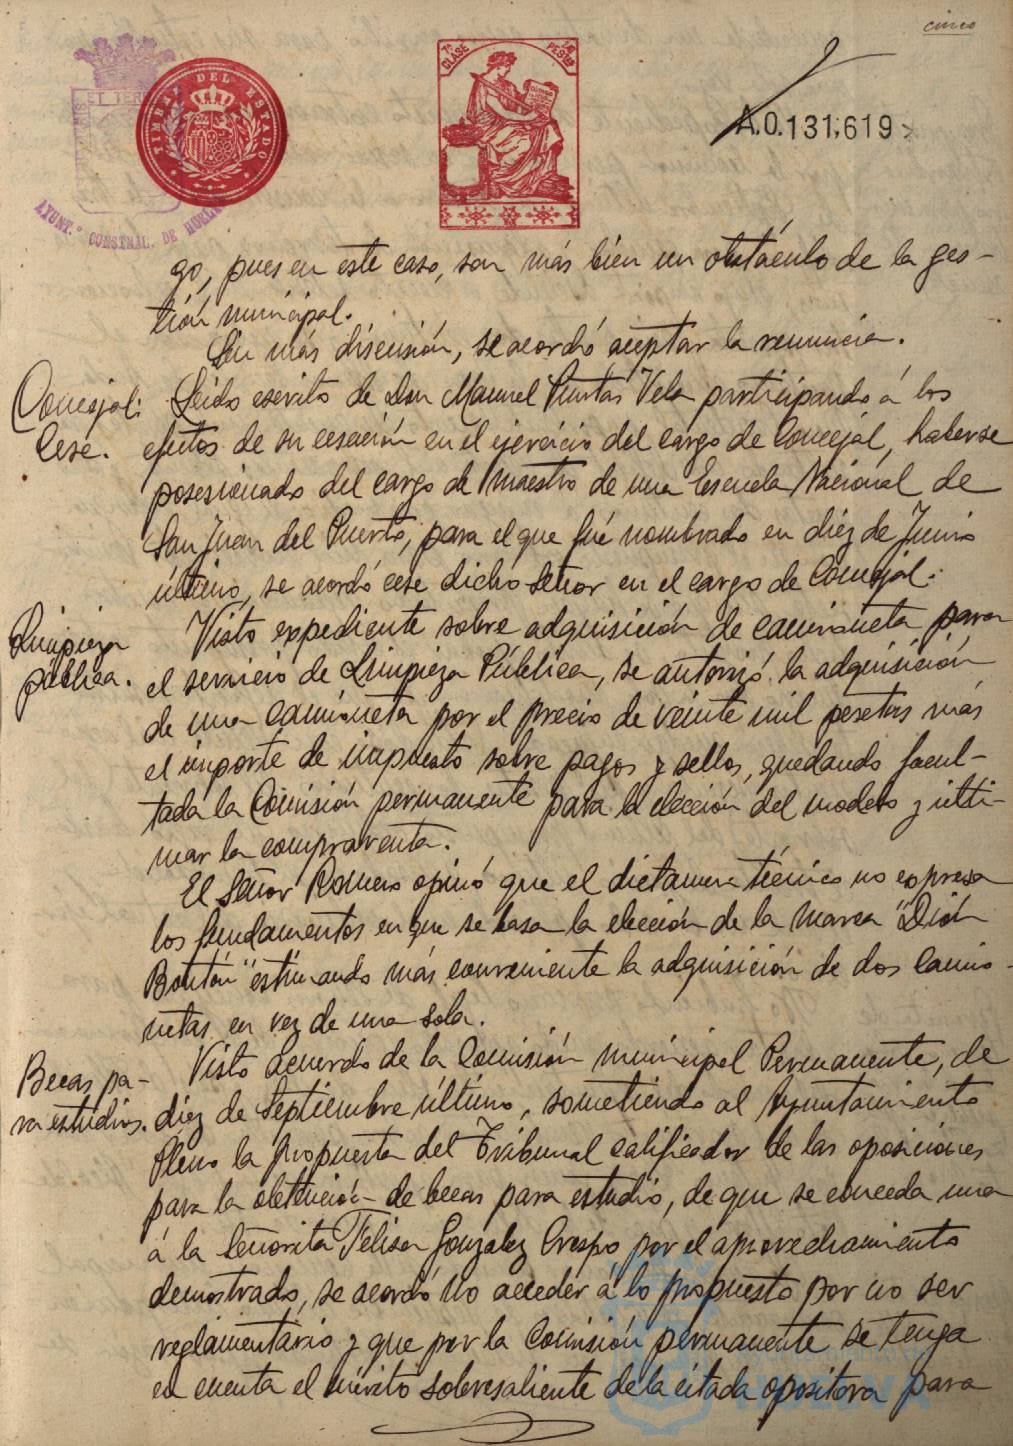 cinco
TIMBRE DEL ESTADO
7ª CLASE
PESTAS
A.0.131,619
AYUNT.º CONSTNAL. DE HUELVA
go, pues en este caso, son más bien un obstáculo de la ges-
tión municipal.
Sin más discusión, se acordó aceptar la renuncia.
Concejal:
Cese.
Leido escrito de Don Manuel Puntas Vela participando á los
efectos de su cesación en el ejercicio del cargo de Concejal, haberse
posesionado del cargo de maestro de una Escuela Nacional de
San Juan del Puerto, para el que fué nombrado en diez de Junio
último, se acordó cese dicho Señor en el cargo de Concejal.
Limpieza
pública.
Visto expediente sobre adquisición de camioneta para
el servicio de Limpieza Pública, se autorizó la adquisición
de una camioneta por el precio de veinte mil pesetas más
el importe de impuesto sobre pagos y sellos, quedando facul-
tada la Comisión permanente para la elección del modelo y ulti-
mar la compraventa.
El Señor Romero opinó que el dictamen técnico no expresa
los fundamentos en que se basa la elección de la marca "Dión
Boutón" estimando más conveniente la adquisición de dos camio-
netas en vez de una sola.
Becas pa-
ra estudios.
Visto acuerdo de la Comisión municipal Permanente, de
diez de Septiembre último, sometiendo al Ayuntamiento
Pleno la propuesta del Tribunal calificador de las oposiciones
para la obtención de becas para estudio, de que se conceda una
á la Señorita Felisa Gonzalez Crespo por el aprovechamiento
demostrado, se acordó no acceder á lo propuesto por no ser
reglamentario y que por la Comisión permanente se tenga
en cuenta el mérito sobresaliente de la citada opositora para
HUELVA